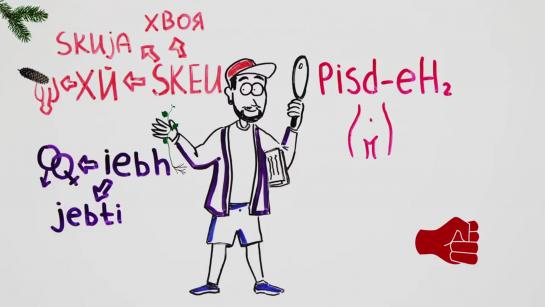 ХВОЯ
SKUJA
ХЙ
SKEU
Pisd-eH₂
iebh
jebti